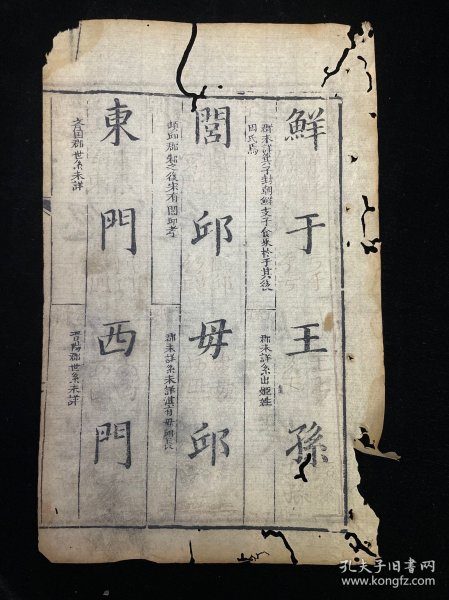 鮮于王孫
郡未詳箕子封朝鮮支子食采於于其後
因氏焉
郡未詳系出姬姓
閭邱毋邱
頓邱郡邾之後宋有閭邱孝
郡未詳系未詳漢有毋邱長
東門西門
齊國郡世系未詳
晋陽郡世系未詳
孔夫子旧书网
www.kongfz.com